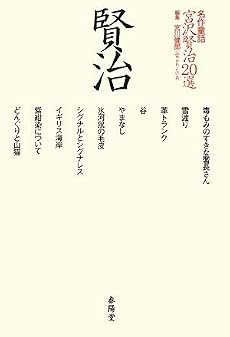 名作童話
宮沢賢治20選
編集 宮川健郎
賢治
毒もみのすきな署長さん
雪渡り
革トランク
谷
やまなし
氷河鼠の毛皮
シグナルとシグナレス
イギリス海岸
紫紺染について
どんぐりと山猫
春陽堂